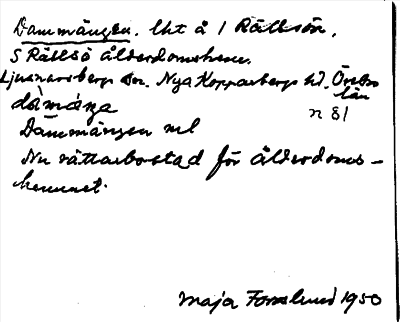 Dammängen. Lht å 1 Rällsön,
S Rällsö ålderdomshem.
Ljusnarsbergs sn. Nya Kopparbergs hd. Örebro
län
n 81
Dammängen ml
Nu rättarbostad för ålderdoms-
hemmet.
Maja Forsslund 1950